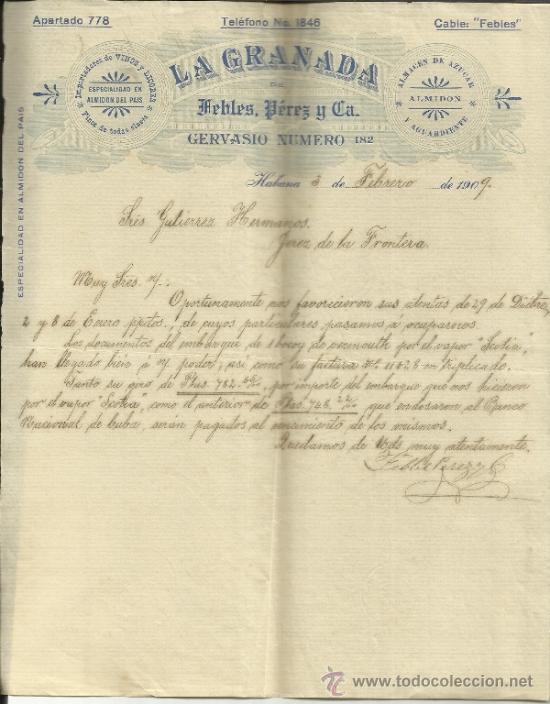 Apartado 778
Teléfono No. 1846
Cable: "Febles"
Importadores de VINOS Y LICORES
ESPECIALIDAD EN
ALMIDON DEL PAIS
Vinos de todas clases
LA GRANADA
DE
Febles, Pérez y Ca.
GERVASIO NUMERO 182
ALMACEN DE AZUCAR
ALMIDON
Y AGUARDIENTE
ESPECIALIDAD EN ALMIDON DEL PAIS
Habana 3 de Febrero de 1909.
Sres Gutierrez Hermanos.
Jerez de la Frontera.
Muy Sres. n/.
Oportunamente nos favorecieron sus atentas de 29 de Dicbre,
2 y 8 de Enero ppdos., de cuyos particulares pasamos á ocuparnos.
Los documentos del embarque de bocoy de vermouth por el vapor "Scotia",
han llegado bien á n/ poder, así como su factura Nº 11023 en triplicado.
Tanto su giro de Ptas. 762. por importe del embarque que nos hicieron
por el vapor "Scotia", como el anterior de Ptas. 746. 22/00 que endosaron al Banco
Nacional de Cuba, serán pagados al vencimiento de los mismos.
Quedamos de Uds. muy atentamente.
Febles Perez y C
todocoleccion
© www.todocoleccion.net